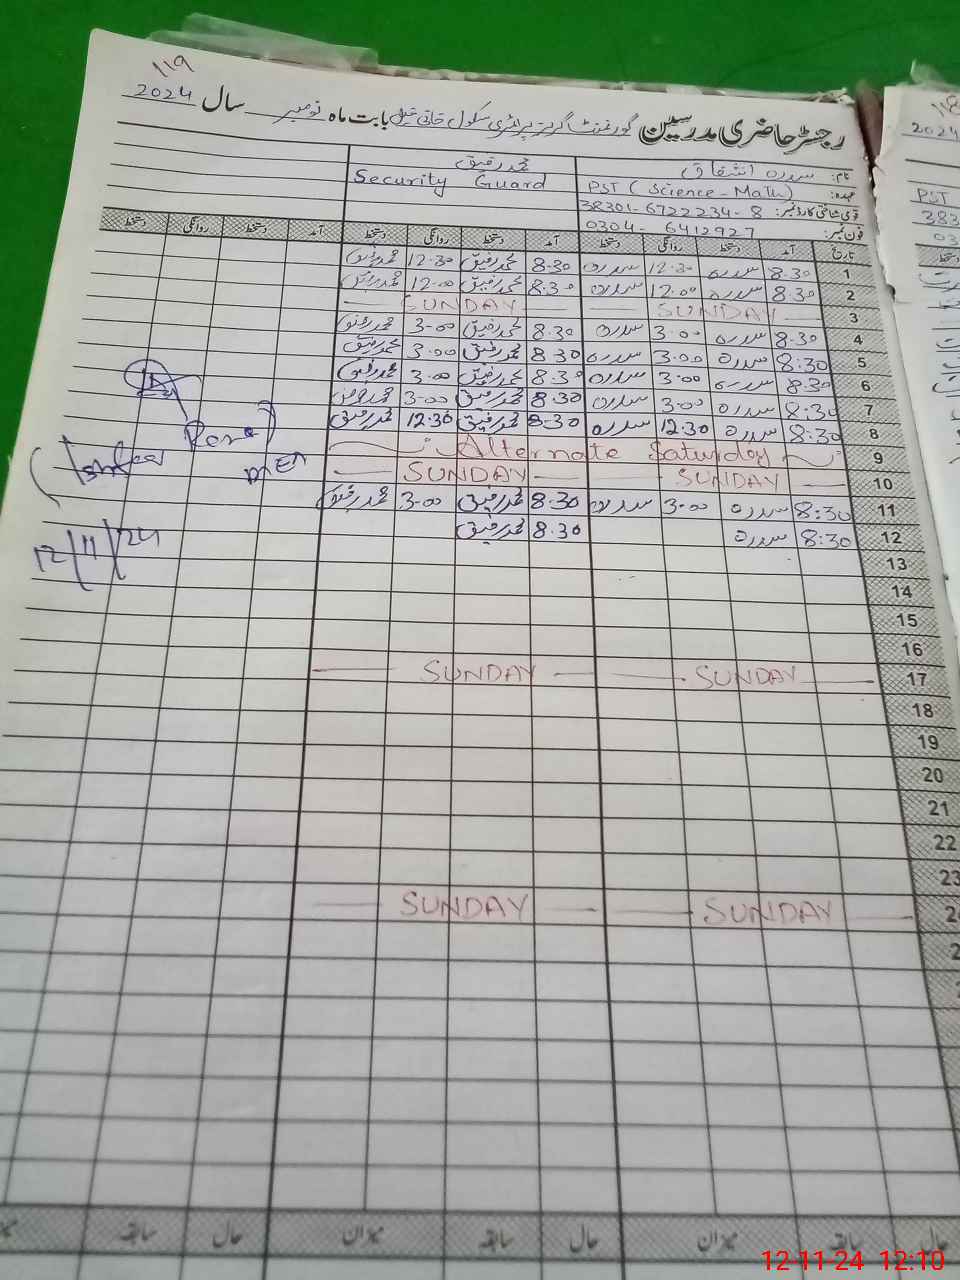 119
رجسٹر حاضری مدرسین گورنمنٹ گرلز پرائمری سکول بابت ماہ نومبر سال 2024
نام: سدرہ اشفاق محمد رفیق
عہدہ: PST (Science - Math) Security Guard
قومی شناختی کارڈ نمبر: 38301-6722234-8
فون نمبر: 0304-6412927
تاریخ آمد دستخط روانگی دستخط آمد دستخط روانگی دستخط آمد دستخط روانگی دستخط
1 8.30 سدرہ 12.30 سدرہ 8.30 محمد رفیق 12.30 محمد رفیق
2 8.30 سدرہ 12.00 سدرہ 8.30 محمد رفیق 12.00 محمد رفیق
3 SUNDAY SUNDAY
4 8.30 سدرہ 3.00 سدرہ 8.30 محمد رفیق 3.00 محمد رفیق
5 8:30 سدرہ 3.00 سدرہ 8.30 محمد رفیق 3.00 محمد رفیق
6 8.30 سدرہ 3.00 سدرہ 8.30 محمد رفیق 3.00 محمد رفیق
7 8.30 سدرہ 3.00 سدرہ 8.30 محمد رفیق 3.00 محمد رفیق
8 8:30 سدرہ 12.30 سدرہ 8.30 محمد رفیق 12.30 محمد رفیق
9 Alternate Saturday
10 SUNDAY SUNDAY
11 8:30 سدرہ 3.00 سدرہ 8.30 محمد رفیق 3.00 محمد رفیق
12 8:30 سدرہ 8.30 محمد رفیق
12/11/24
13
14
15
16
17 SUNDAY SUNDAY
18
19
20
21
22
23
24 SUNDAY SUNDAY
حال سابقہ میزان حال سابقہ میزان حال سابقہ
118
2024
PST
12-11-24 12:10